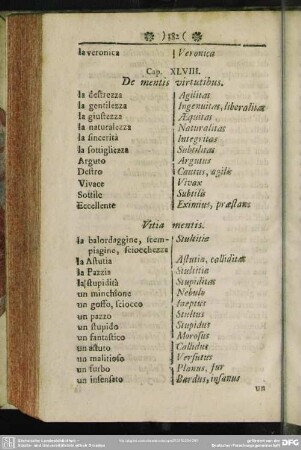 ) 382 (
la veronica Veronica
Cap. XLVIII.
De mentis virtutibus.
la destrezza Agilitas
la gentilezza Ingenuitas, liberalitas
la giustezza Æquitas
la naturalezza Naturalitas
la sincerità Integritas
la sottigliezza Subtilitas
Arguto Argutus
Destro Cautus, agilis
Vivace Vivax
Sottile Subtilis
Eccellente Eximius, præstans
Vitia mentis.
la balordaggine, scem- Stultitia
piagine, sciocchezza
la Astutia Astutia, calliditas
la Pazzia Stultitia
la stupidità Stupiditas
un minchione Nebulo
un goffo, sciocco Ineptus
un pazzo Stultus
un stupido Stupidus
un fantastico Morosus
un astuto Callidus
un malitioso Versutus
un furbo Planus, fur
un insensato Bardus, insanus
un